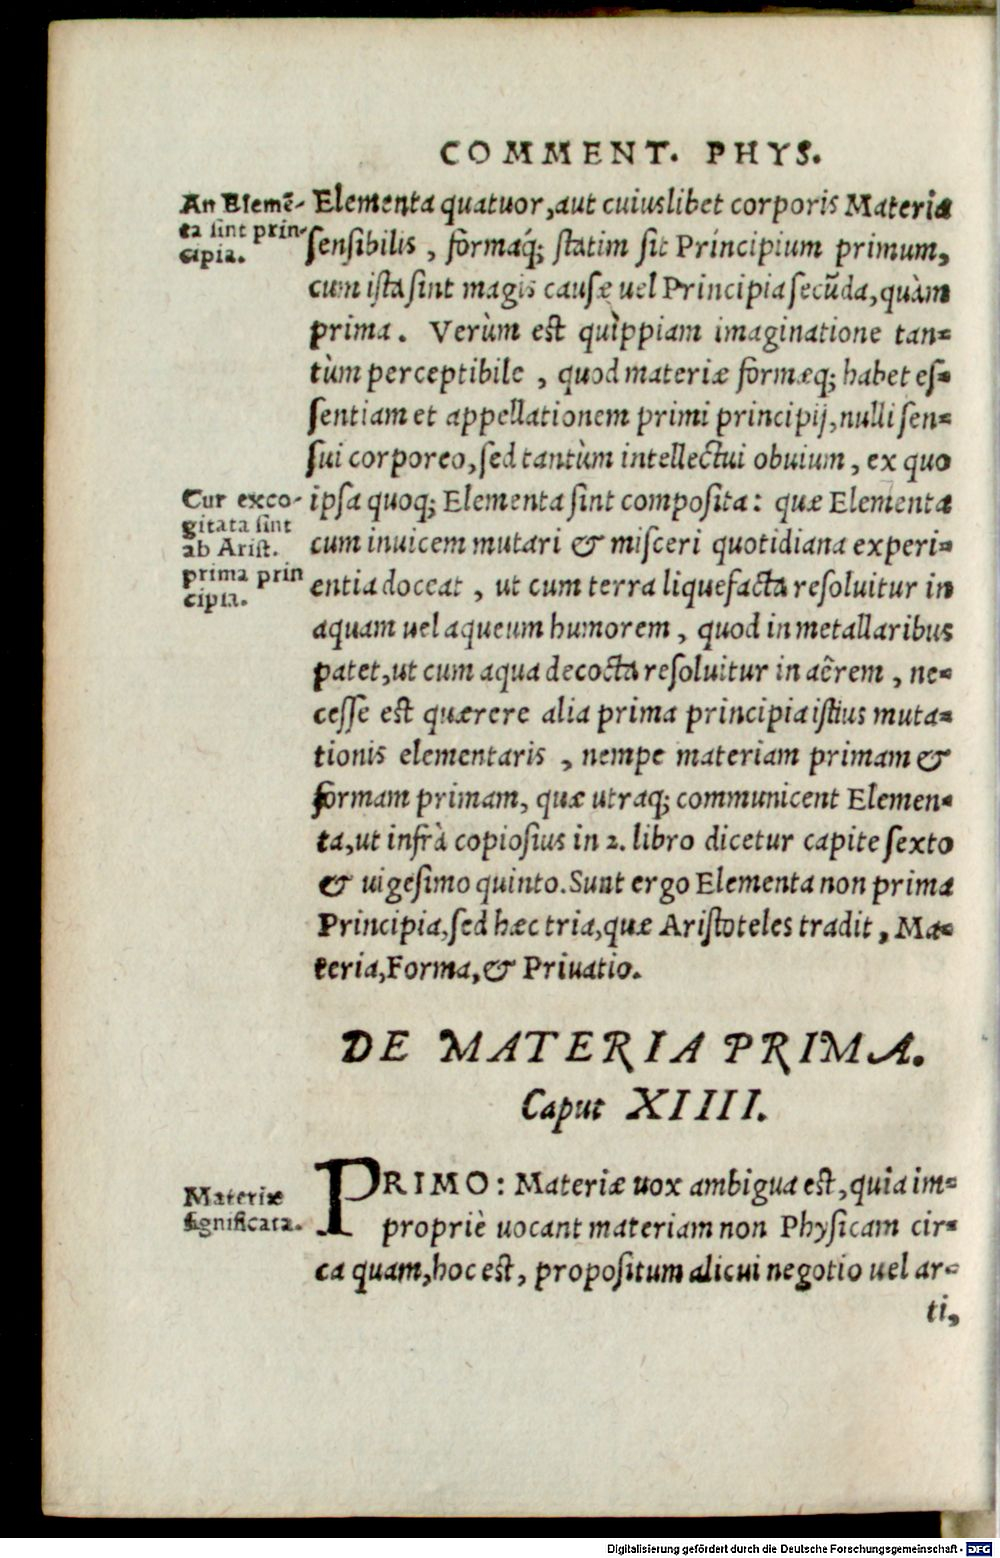 COMMENT. PHYS.
An Elemẽ-
ta sint prin-
cipia.
Elementa quatuor, aut cuiuslibet corporis Materia
sensibilis, formaq́; statim sit Principium primum,
cum ista sint magis causæ uel Principia secũda, quàm
prima. Verùm est quippiam imaginatione tan-
tùm perceptibile, quod materiæ formæq; habet es-
sentiam et appellationem primi principij, nulli sen-
sui corporeo, sed tantùm intellectui obuium, ex quo
Cur exco-
gitata sint
ab Arist.
prima prin
cipia.
ipsa quoq; Elementa sint composita: quæ Elementa
cum inuicem mutari & misceri quotidiana experi-
entia doceat, ut cum terra liquefacta resoluitur in
aquam uel aqueum humorem, quod in metallaribus
patet, ut cum aqua decocta resoluitur in aërem, ne-
cesse est quærere alia prima principia istius muta-
tionis elementaris, nempe materiam primam &
formam primam, quæ utraq; communicent Elemen-
ta, ut infrà copiosius in 2. libro dicetur capite sexto
& uigesimo quinto. Sunt ergo Elementa non prima
Principia, sed hæc tria, quæ Aristoteles tradit, Ma-
teria, Forma, & Priuatio.
DE MATERIA PRIMA.
Caput XIIII.
Materiæ
significata.
PRIMO: Materiæ uox ambigua est, quia im-
propriè uocant materiam non Physicam cir-
ca quam, hoc est, propositum alicui negotio uel ar-
ti,
Digitalisierung gefördert durch die Deutsche Forschungsgemeinschaft - DFG